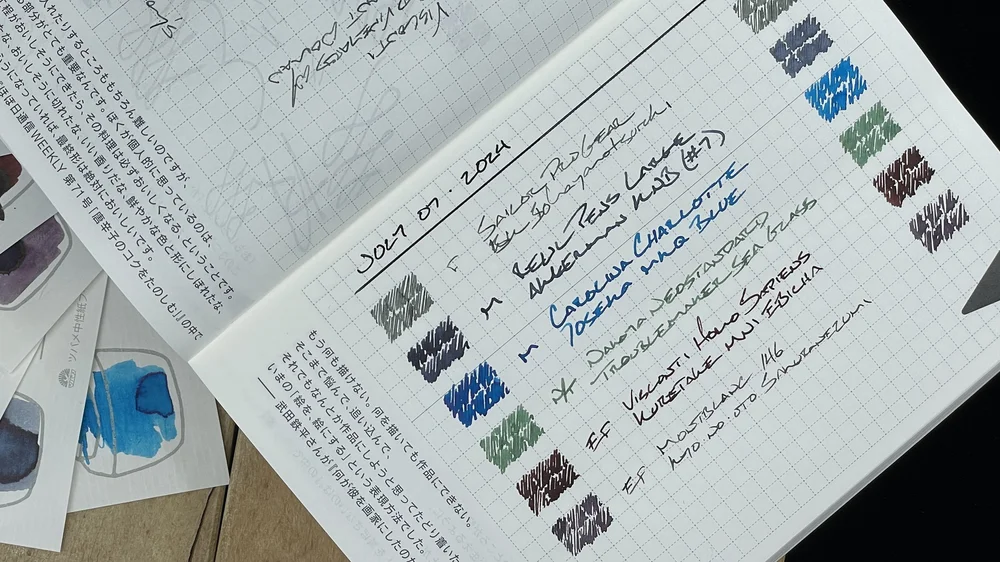 JULY 07. 2024
F SAILOR PRO GEAR
M REGL PENS LARGE
ANDERMAN KNB (#7)
M CAROLINA CHARLOTTE
BLUE
DAKOTA NEOSTANDARD
TROUBLEMAKER SEA GLASS
EF VISCONTI HOMO SAPIENS
KURETAKE MNI EBICHA
EF MONTBLANC 146
KYO NO OTO SAKURANEZUMI
VISCONTI
入れたりするところももちろん難しいのですが、
部分がとても重要なんです。ぼくが個人的に思っているのは、
程がおいしそうにできたら、その料理は必ずおいしくなる、ということです。
な、おいしそうに切れたな、いい香りだな、鮮やかな色と形にしぼれたな、
うになっていれば、最終形は絶対においしいです。
ほぼ日通信WEEKLY 第71号「唐辛子のコクをたのしむ」』の中で
もう何も描けない。何を描いても作品にできない。
そこまで悩んで、追い込んで、
それでもなんとか作品にしようと思ってたどり着いた
いまの「絵を、絵にする」という表現方法でした。
武田鉄平さんが『何が彼を画家にしたのか
ツバメ中性紙